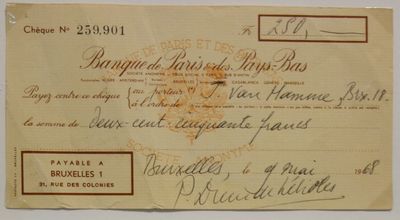 Chèque No 259,901
Fr. 250,—
Banque de Paris et des Pays-Bas
SOCIÉTÉ ANONYME
Payez contre ce chèque au porteur
à l'ordre de J. Van Hamme, Brx. 18.
la somme de deux cent cinquante francs
PAYABLE A
BRUXELLES 1
31, RUE DES COLONIES
Bruxelles, le 9 mai 1968